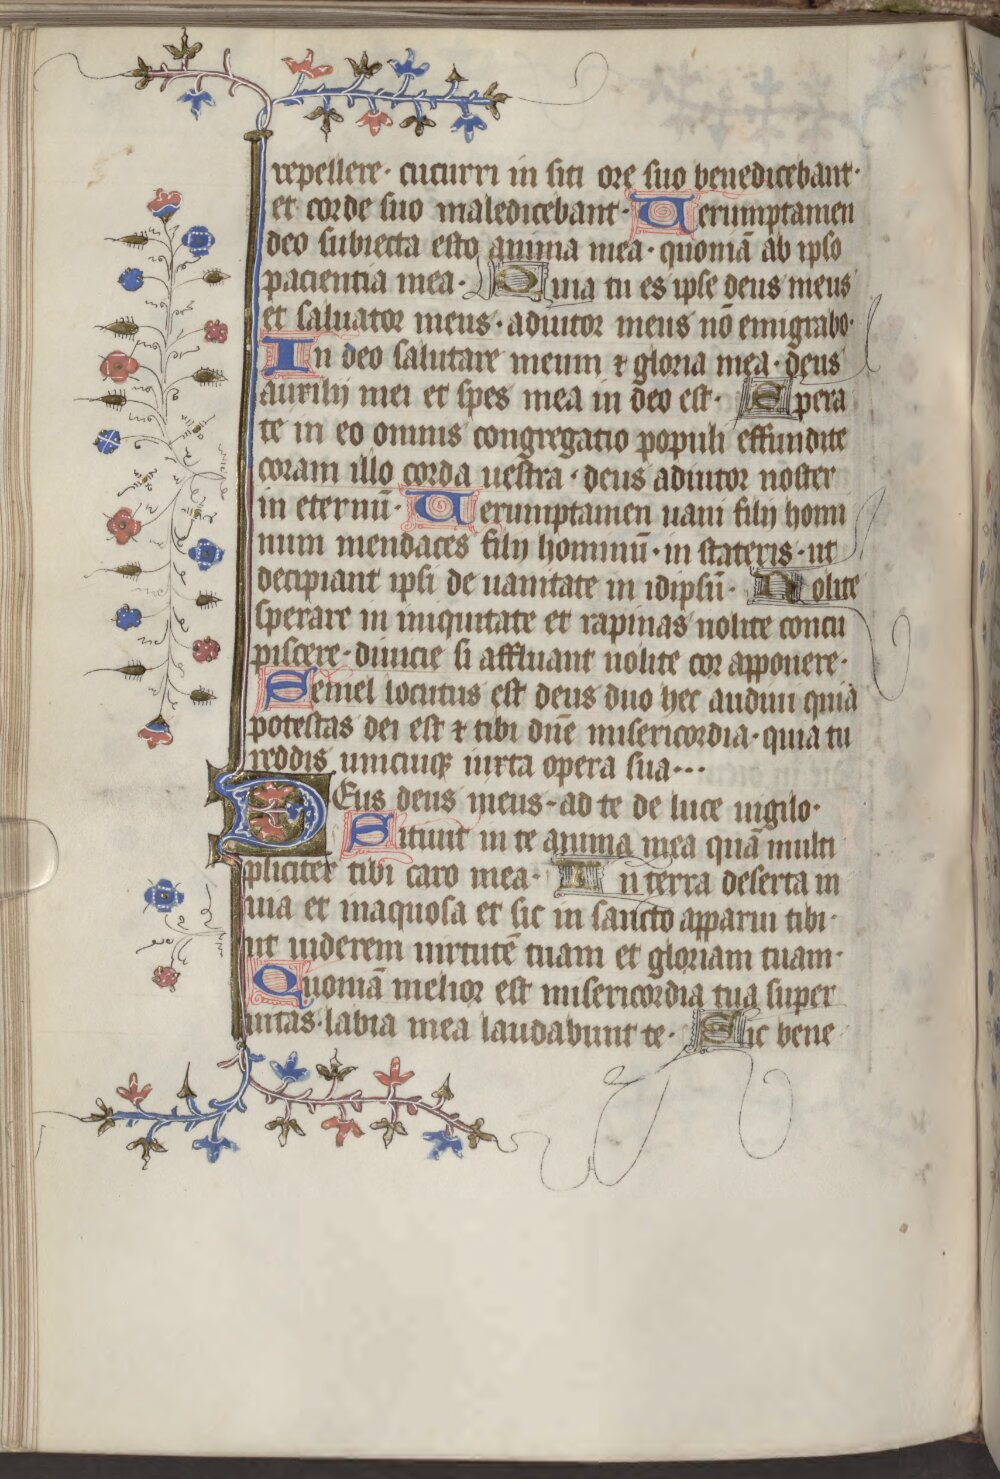 repellere· cucurri in siti ore suo benedicebant·
et corde suo maledicebant· Uerumptamen
deo subiecta esto anima mea· quoniā ab ipso
paciencia mea· Quia tu es ipse deus meus
et saluator meus· adiutor meus nō emigrabo·
In deo salutare meum ⁊ gloria mea· deus
auxilij mei et spes mea in deo est· Spera
te in eo omnis congregatio populi effundite
coram illo corda uestra· deus adiutor noster
in eternū· Uerumptamen uani filij homi
num mendaces filij hominū· in stateris· ut
decipiant ipsi de uanitate in idipsū· Nolite
sperare in iniquitate et rapinas nolite concu
piscere· diuicie si affluant nolite cor apponere·
Semel locutus est deus duo hec audiui quia
potestas dei est ⁊ tibi dn̄e misericordia· quia tu
reddis unicuiqꝫ iuxta opera sua···
DEus deus meus· ad te de luce uigilo·
Sitiuit in te anima mea quā multi
pliciter tibi caro mea· In terra deserta in
uia et inaquosa et sic in sancto apparui tibi·
ut uiderem uirtutē tuam et gloriam tuam·
Quoniā melior est misericordia tua super
uitas· labia mea laudabunt te· Sic bene